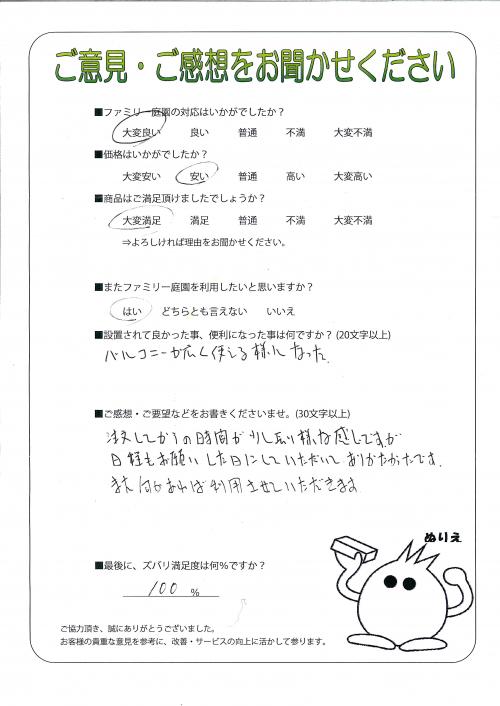 ご意見・ご感想をお聞かせください
■ファミリー庭園の対応はいかがでしたか？
大変良い 良い 普通 不満 大変不満
■価格はいかがでしたか？
大変安い 安い 普通 高い 大変高い
■商品はご満足頂けましたでしょうか？
大変満足 満足 普通 不満 大変不満
⇒よろしければ理由をお聞かせください。
■またファミリー庭園を利用したいと思いますか？
はい どちらとも言えない いいえ
■設置されて良かった事、便利になった事は何ですか？(20文字以上)
バルコニーが広く使える様になった。
■ご感想・ご要望などをお書きくださいませ。(30文字以上)
注文してからの時間が少し長い様な感じですが
日程もお願いした日にしていただいてありがたかったです。
また何かあれば利用させていただきます
ぬりえ
■最後に、ズバリ満足度は何％ですか？
100 %
ご協力頂き、誠にありがとうございました。
お客様の貴重な意見を参考に、改善・サービスの向上に活かして参ります。